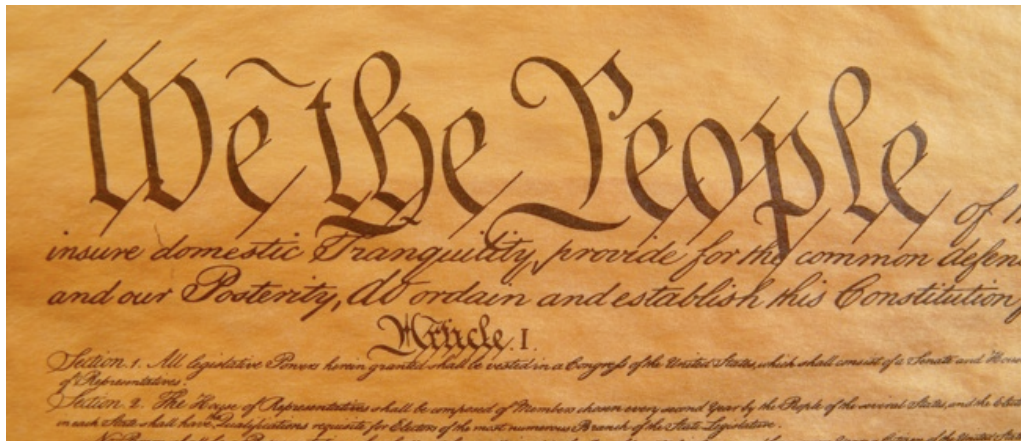 We the People of
insure domestic Tranquility, provide for the common defen
and our Posterity, do ordain and establish this Constitution
Article. I.
Section. 1. All legislative Powers herein granted shall be vested in a Congreſs of the United States, which shall consist of a Senate and Hous
of Representatives.
Section. 2. The House of Representatives shall be composed of Members chosen every second Year by the People of the several States, and the Elect
in each State shall have Qualifications requisite for Electors of the most numerous Branch of the State Legislature.
No Person shall be